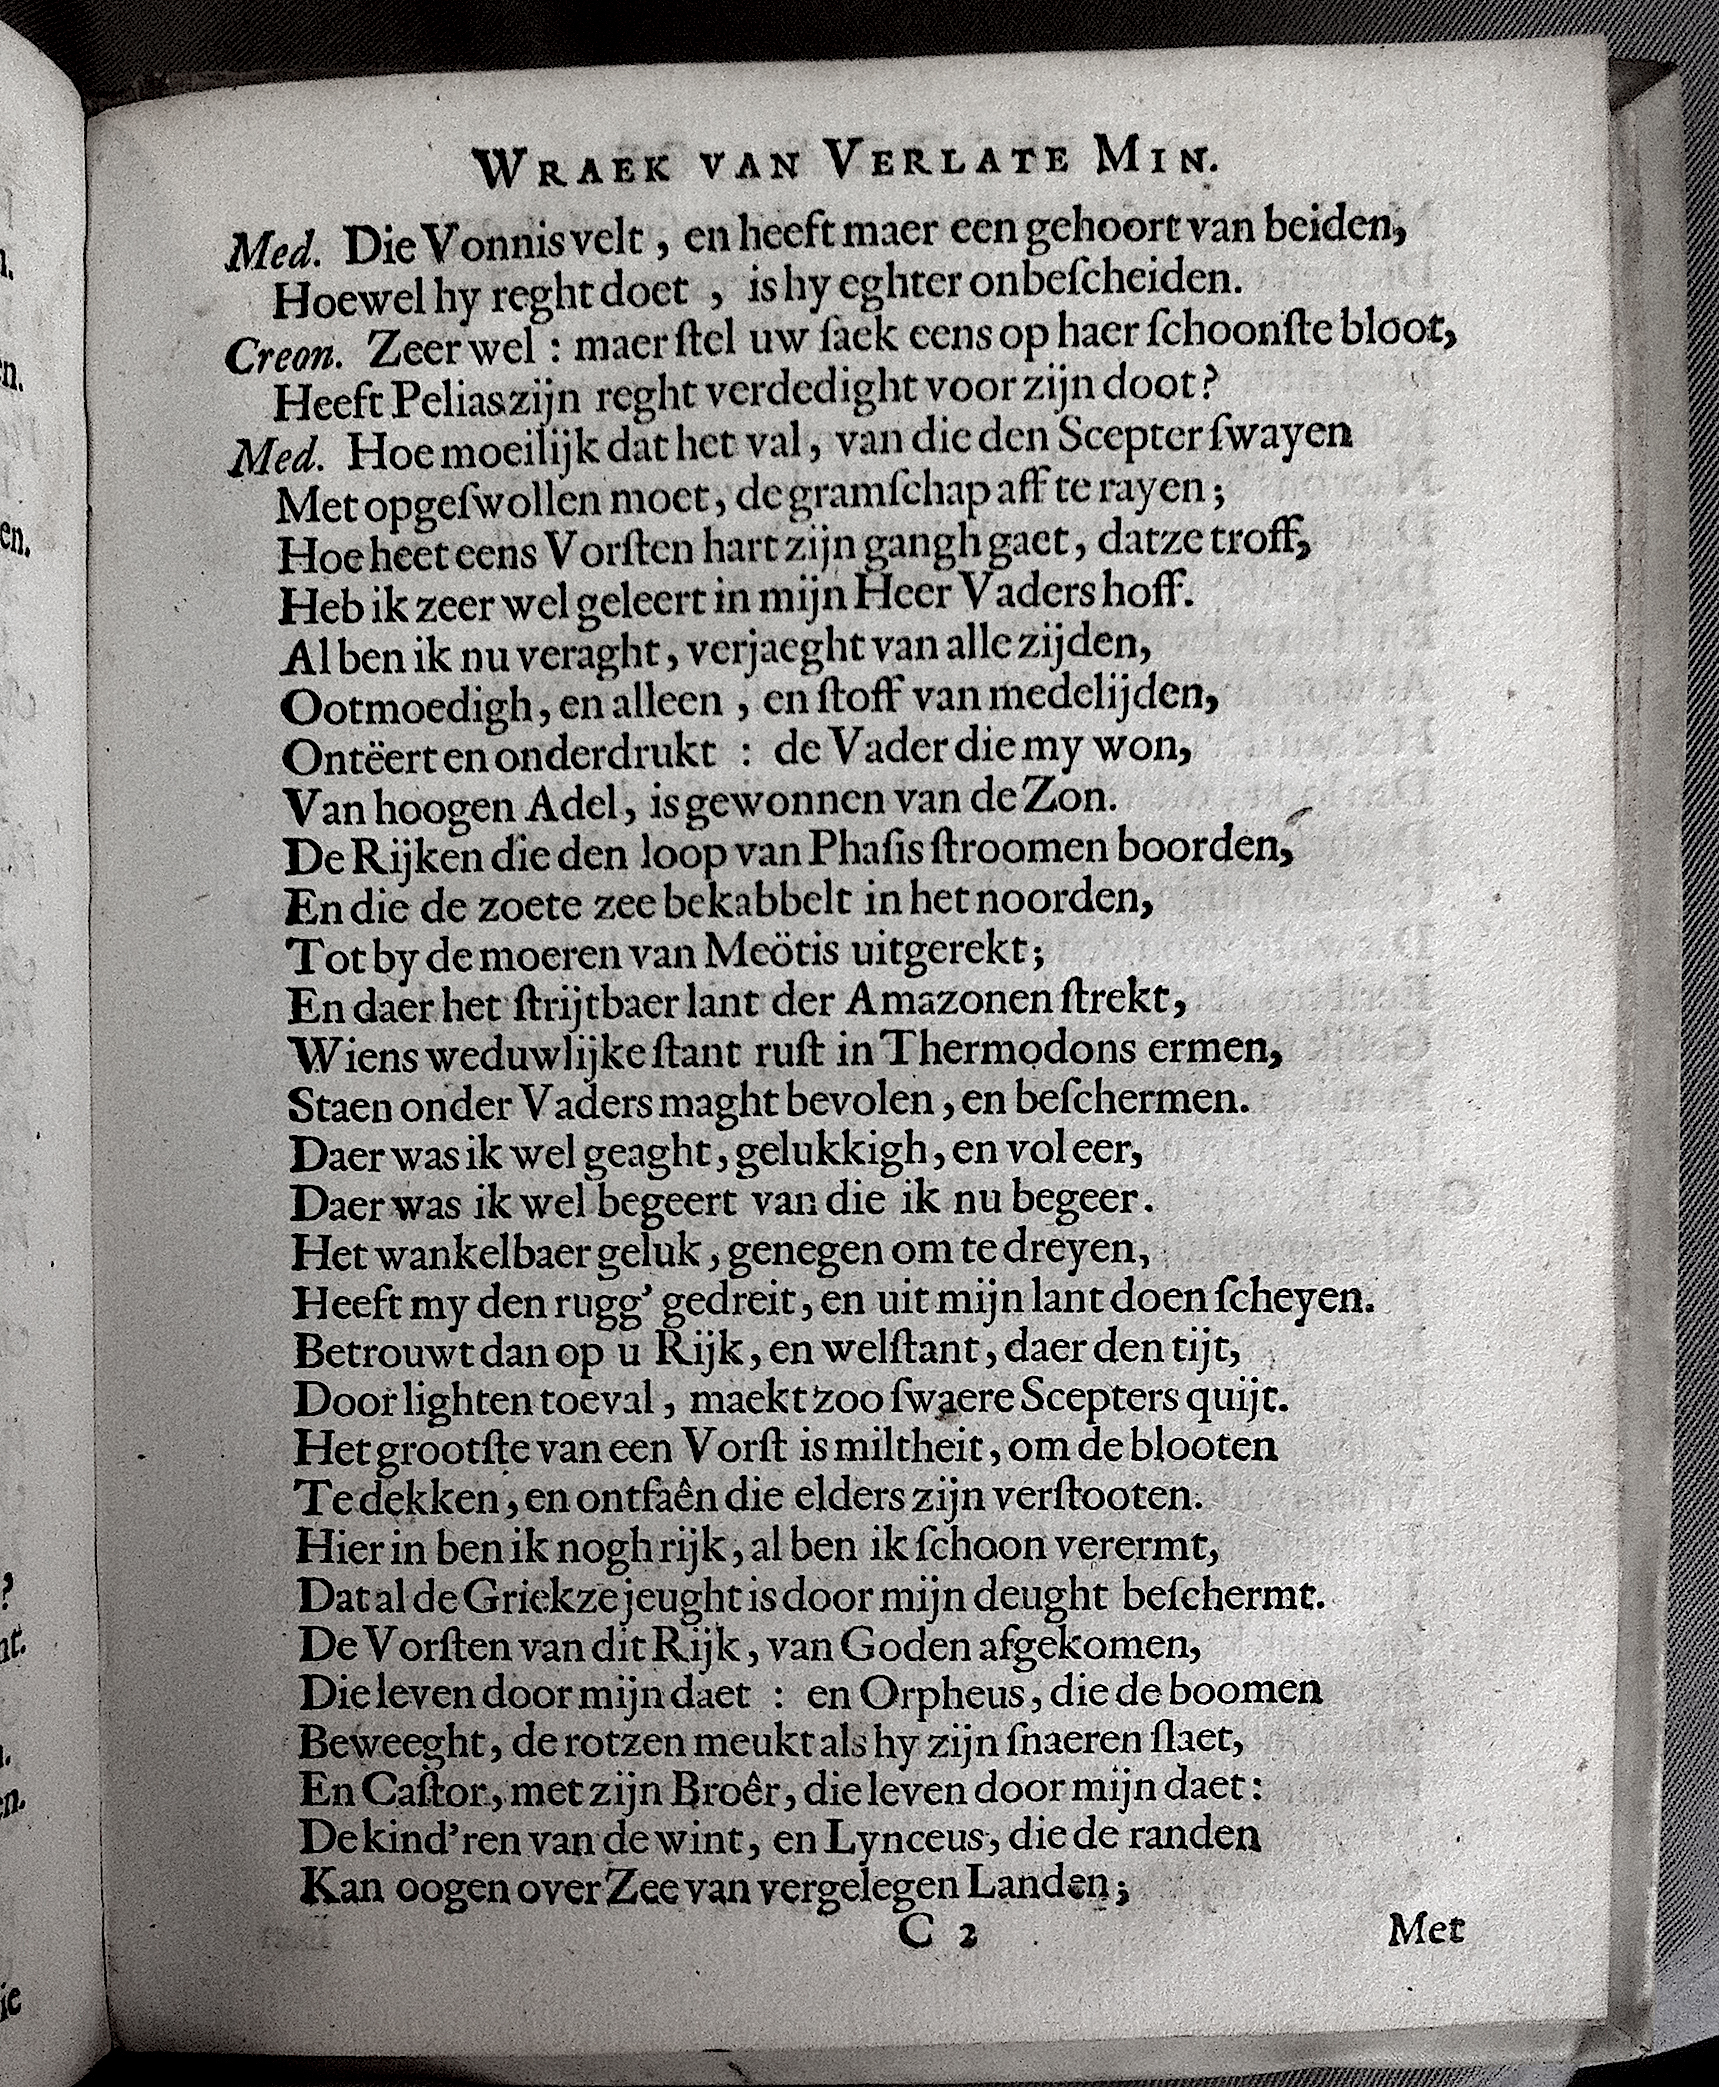 WRAEK VAN VERLATE MIN.
Med. Die Vonnis velt, en heeft maer een gehoort van beiden,
Hoewel hy reght doet, is hy eghter onbeſcheiden.
Creon. Zeer wel: maer ſtel uw ſaek eens op haer ſchoonſte bloot,
Heeft Pelias zijn reght verdedight voor zijn doot?
Med. Hoe moeilijk dat het val, van die den Scepter ſwayen
Met opgeſwollen moet, de gramſchap aff te rayen;
Hoe heet eens Vorſten hart zijn gangh gaet, datze troff,
Heb ik zeer wel geleert in mijn Heer Vaders hoff.
Al ben ik nu veraght, verjaeght van alle zijden,
Ootmoedigh, en alleen, en ſtoff van medelijden,
Ontëert en onderdrukt: de Vader die my won,
Van hoogen Adel, is gewonnen van de Zon.
De Rijken die den loop van Phaſis ſtroomen boorden,
En die de zoete zee bekabbelt in het noorden,
Tot by de moeren van Meötis uitgerekt;
En daer het ſtrijtbaer lant der Amazonen ſtrekt,
Wiens weduwlijke ſtant ruſt in Thermodons ermen,
Staen onder Vaders maght bevolen, en beſchermen.
Daer was ik wel geaght, gelukkigh, en vol eer,
Daer was ik wel begeert van die ik nu begeer.
Het wankelbaer geluk, genegen om te dreyen,
Heeft my den rugg' gedreit, en uit mijn lant doen ſcheyen.
Betrouwt dan op u Rijk, en welſtant, daer den tijt,
Door lighten toeval, maekt zoo ſwaere Scepters quijt.
Het grootſte van een Vorſt is miltheit, om de blooten
Te dekken, en ontfaên die elders zijn verſtooten.
Hier in ben ik nogh rijk, al ben ik ſchoon verermt,
Dat al de Griekze jeught is door mijn deught beſchermt.
De Vorſten van dit Rijk, van Goden afgekomen,
Die leven door mijn daet: en Orpheus, die de boomen
Beweeght, de rotzen meukt als hy zijn ſnaeren ſlaet,
En Caſtor, met zijn Broêr, die leven door mijn daet:
De kind'ren van de wint, en Lynceus, die de randen
Kan oogen over Zee van vergelegen Landen;
C 2
Met